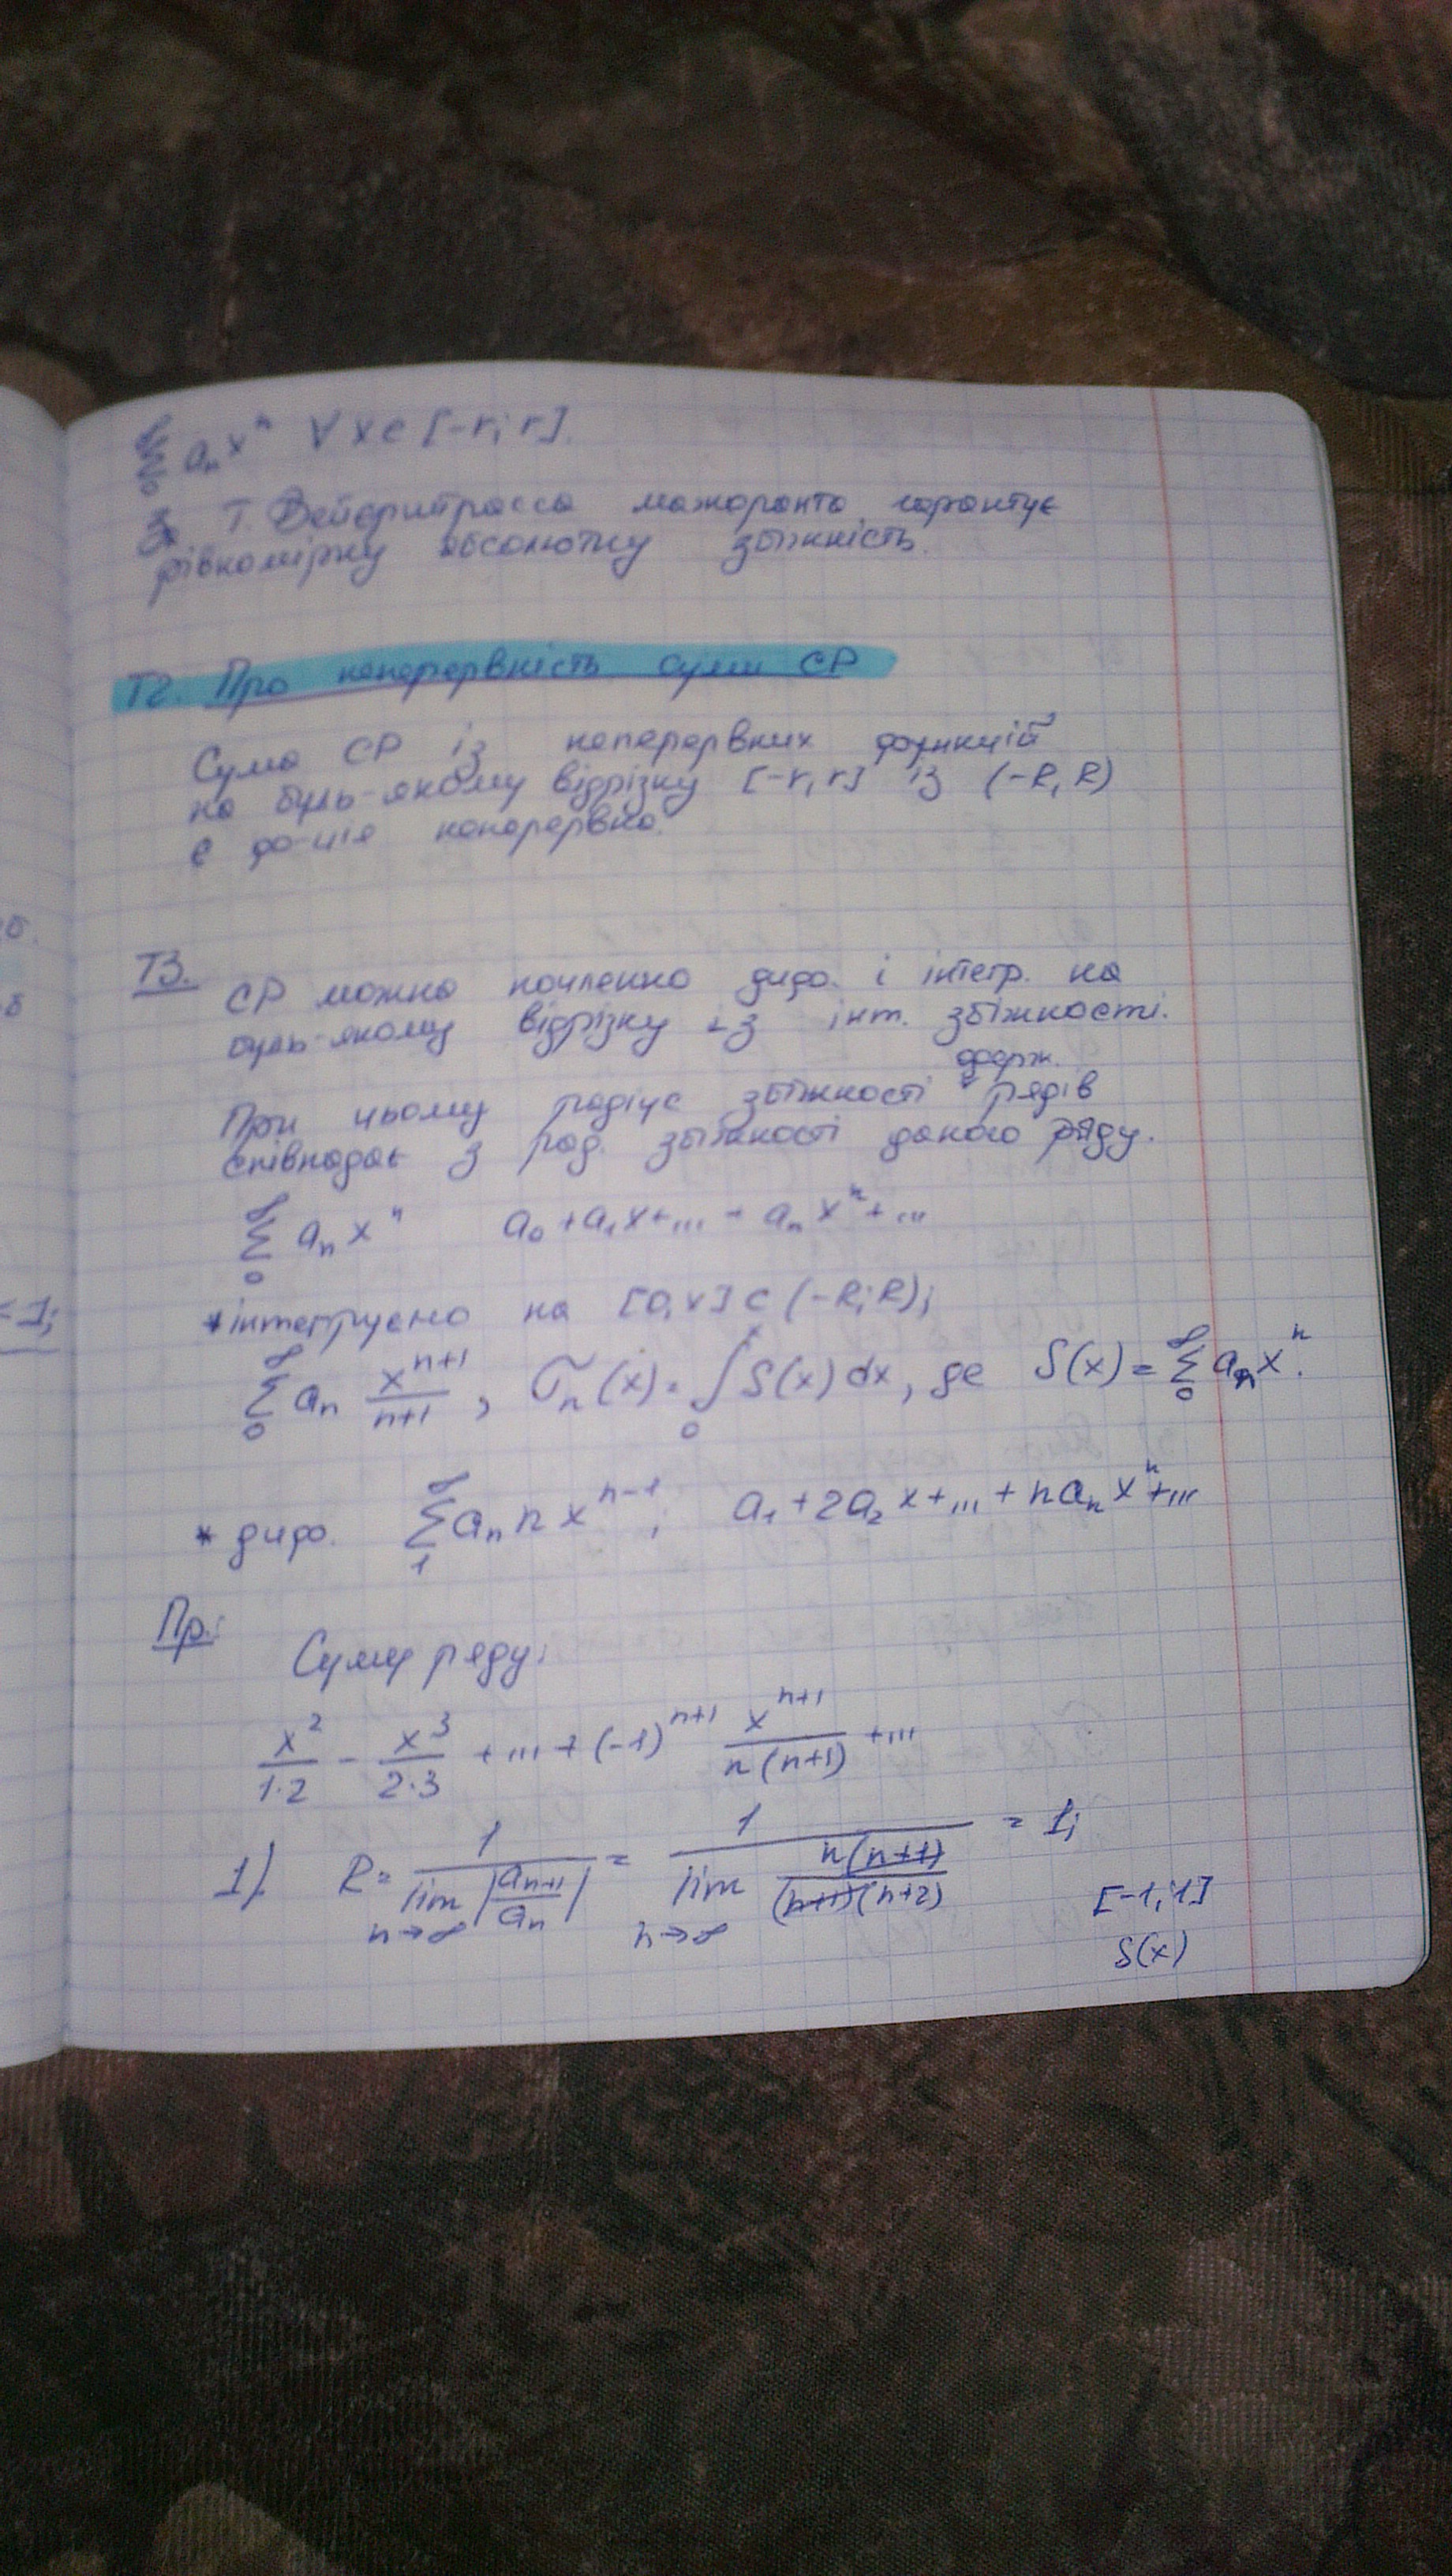 ∞
Σ aₙxⁿ ∀ x ∈ [-r; r].
0
З Т. Вейєрштрасса мажоранта гарантує
рівномірну абсолютну збіжність.
Т2. Про неперервність суми СР
Сума СР із неперервних функцій
на будь-якому відрізку [-r, r] із (-R, R)
є ф-ція неперервна.
Т3. СР можна почленно диф. і інтегр. на
будь-якому відрізку із інт. збіжності.
одерж.
При цьому радіус збіжності рядів
співпадає з рад. збіжності даного ряду.
∞
Σ aₙxⁿ a₀ + a₁x + ... + aₙxⁿ + ...
0
* інтегруємо на [0, x] ⊂ (-R; R);
∞
Σ aₙ xⁿ⁺¹/(n+1) , σₙ(x) = ∫₀ˣ S(x) dx, де S(x) = Σ₀^∞ aₙxⁿ.
0
* диф. Σ₁^∞ aₙ n xⁿ⁻¹; a₁ + 2a₂x + ... + naₙxⁿ + ...
Пр.:
Суму ряду:
x²/(1·2) - x³/(2·3) + ... + (-1)ⁿ⁺¹ xⁿ⁺¹/(n(n+1)) + ...
1). R = 1/(lim n→∞ |aₙ₊₁/aₙ|) = 1/(lim n→∞ n(n+1)/((n+1)(n+2))) = 1;
[-1; 1]
S(x)